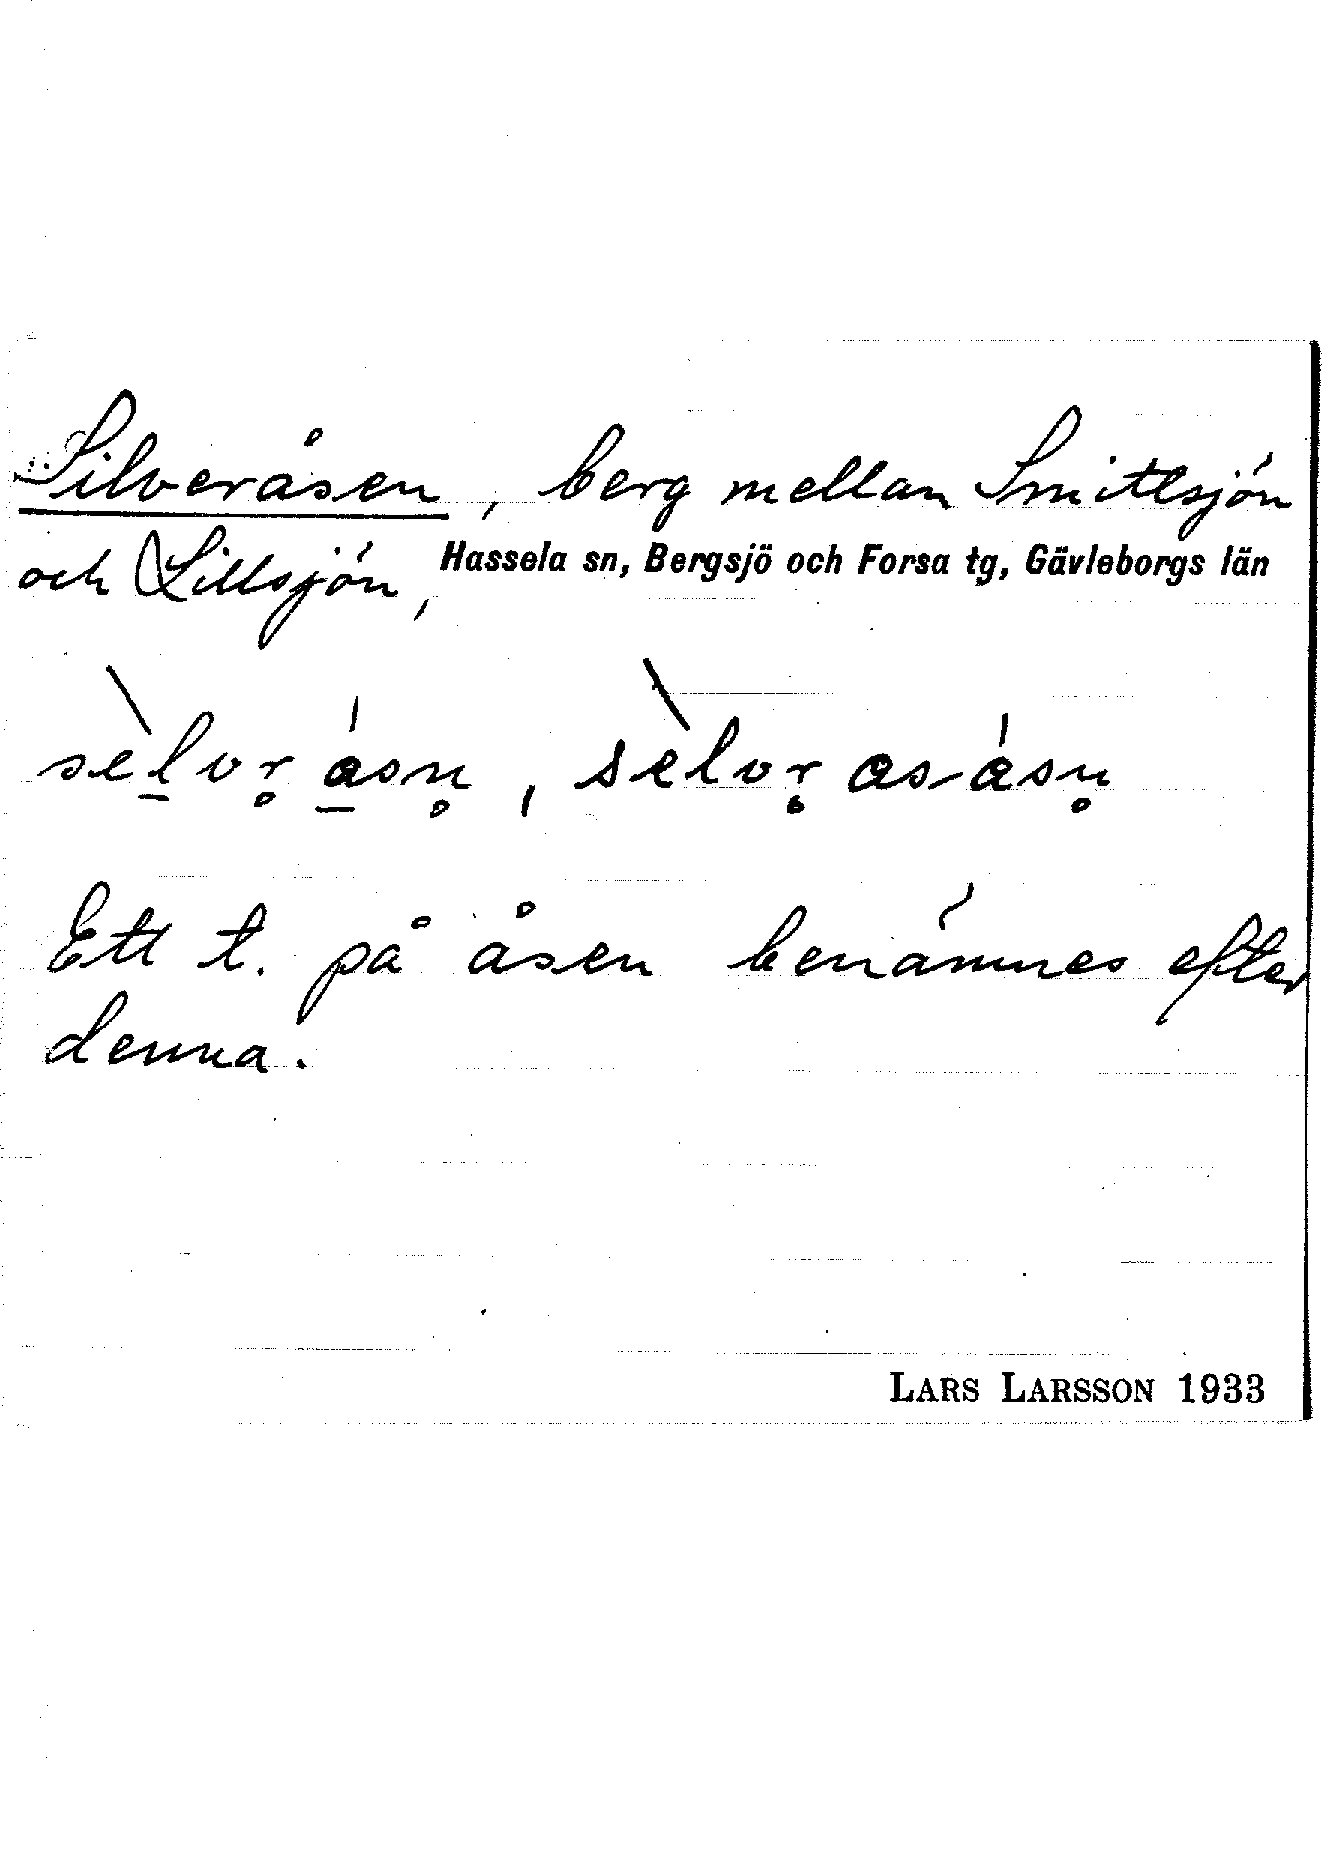 Silveråsen, berg mellan Smitlsjön
och Lillsjön, Hassela sn, Bergsjö och Forsa tg, Gävleborgs län
sèl̠vr̥ á̠sn̥, sèlvr̥ asásn̥
Ett t. på åsen benämnes efter
denna.
LARS LARSSON 1933